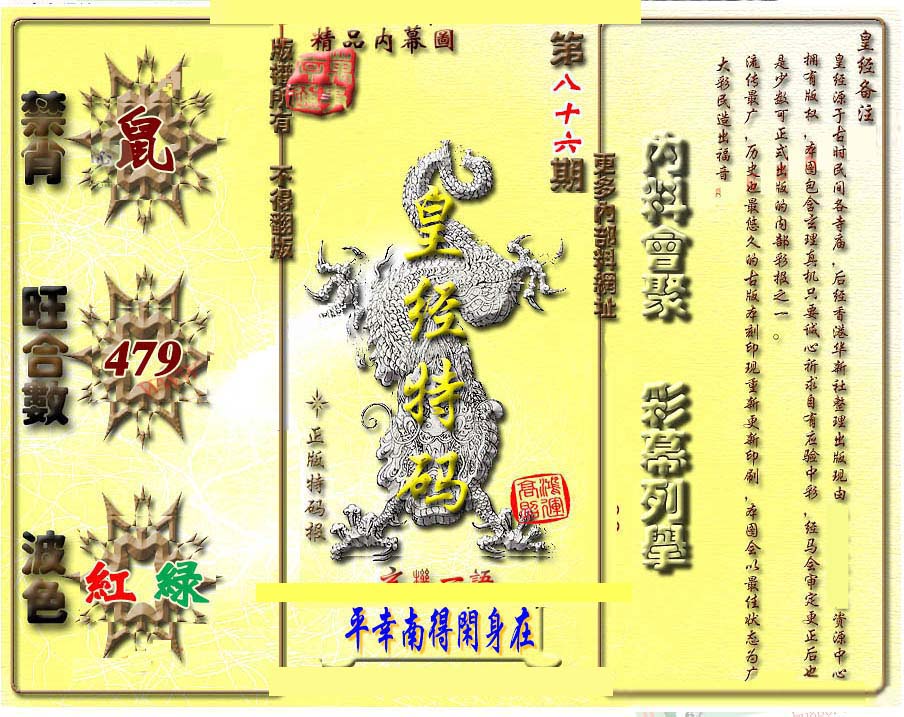 皇经备注
皇经源于古时民间各寺庙，后经香港华新社整理出版现由
资源中心
拥有版权，本图包含玄理真机只要诚心祈求自有应验中彩，经马会审定更正后也
是少数可正式出版的内部彩报之一。
流传最广，历史也最悠久的古版本刻印现重新更新印刷，本图会以最佳状态为广
大彩民造出福音
內料會聚
彩幕列舉
更多內部料網址
第八十六期
精品内幕圖
皇经特码
正版特码报
鴻運
高照
玄機一語
平幸南得閑身在
版權所有 不得翻版
禁肖
鼠
旺合數
479
波色
紅 綠